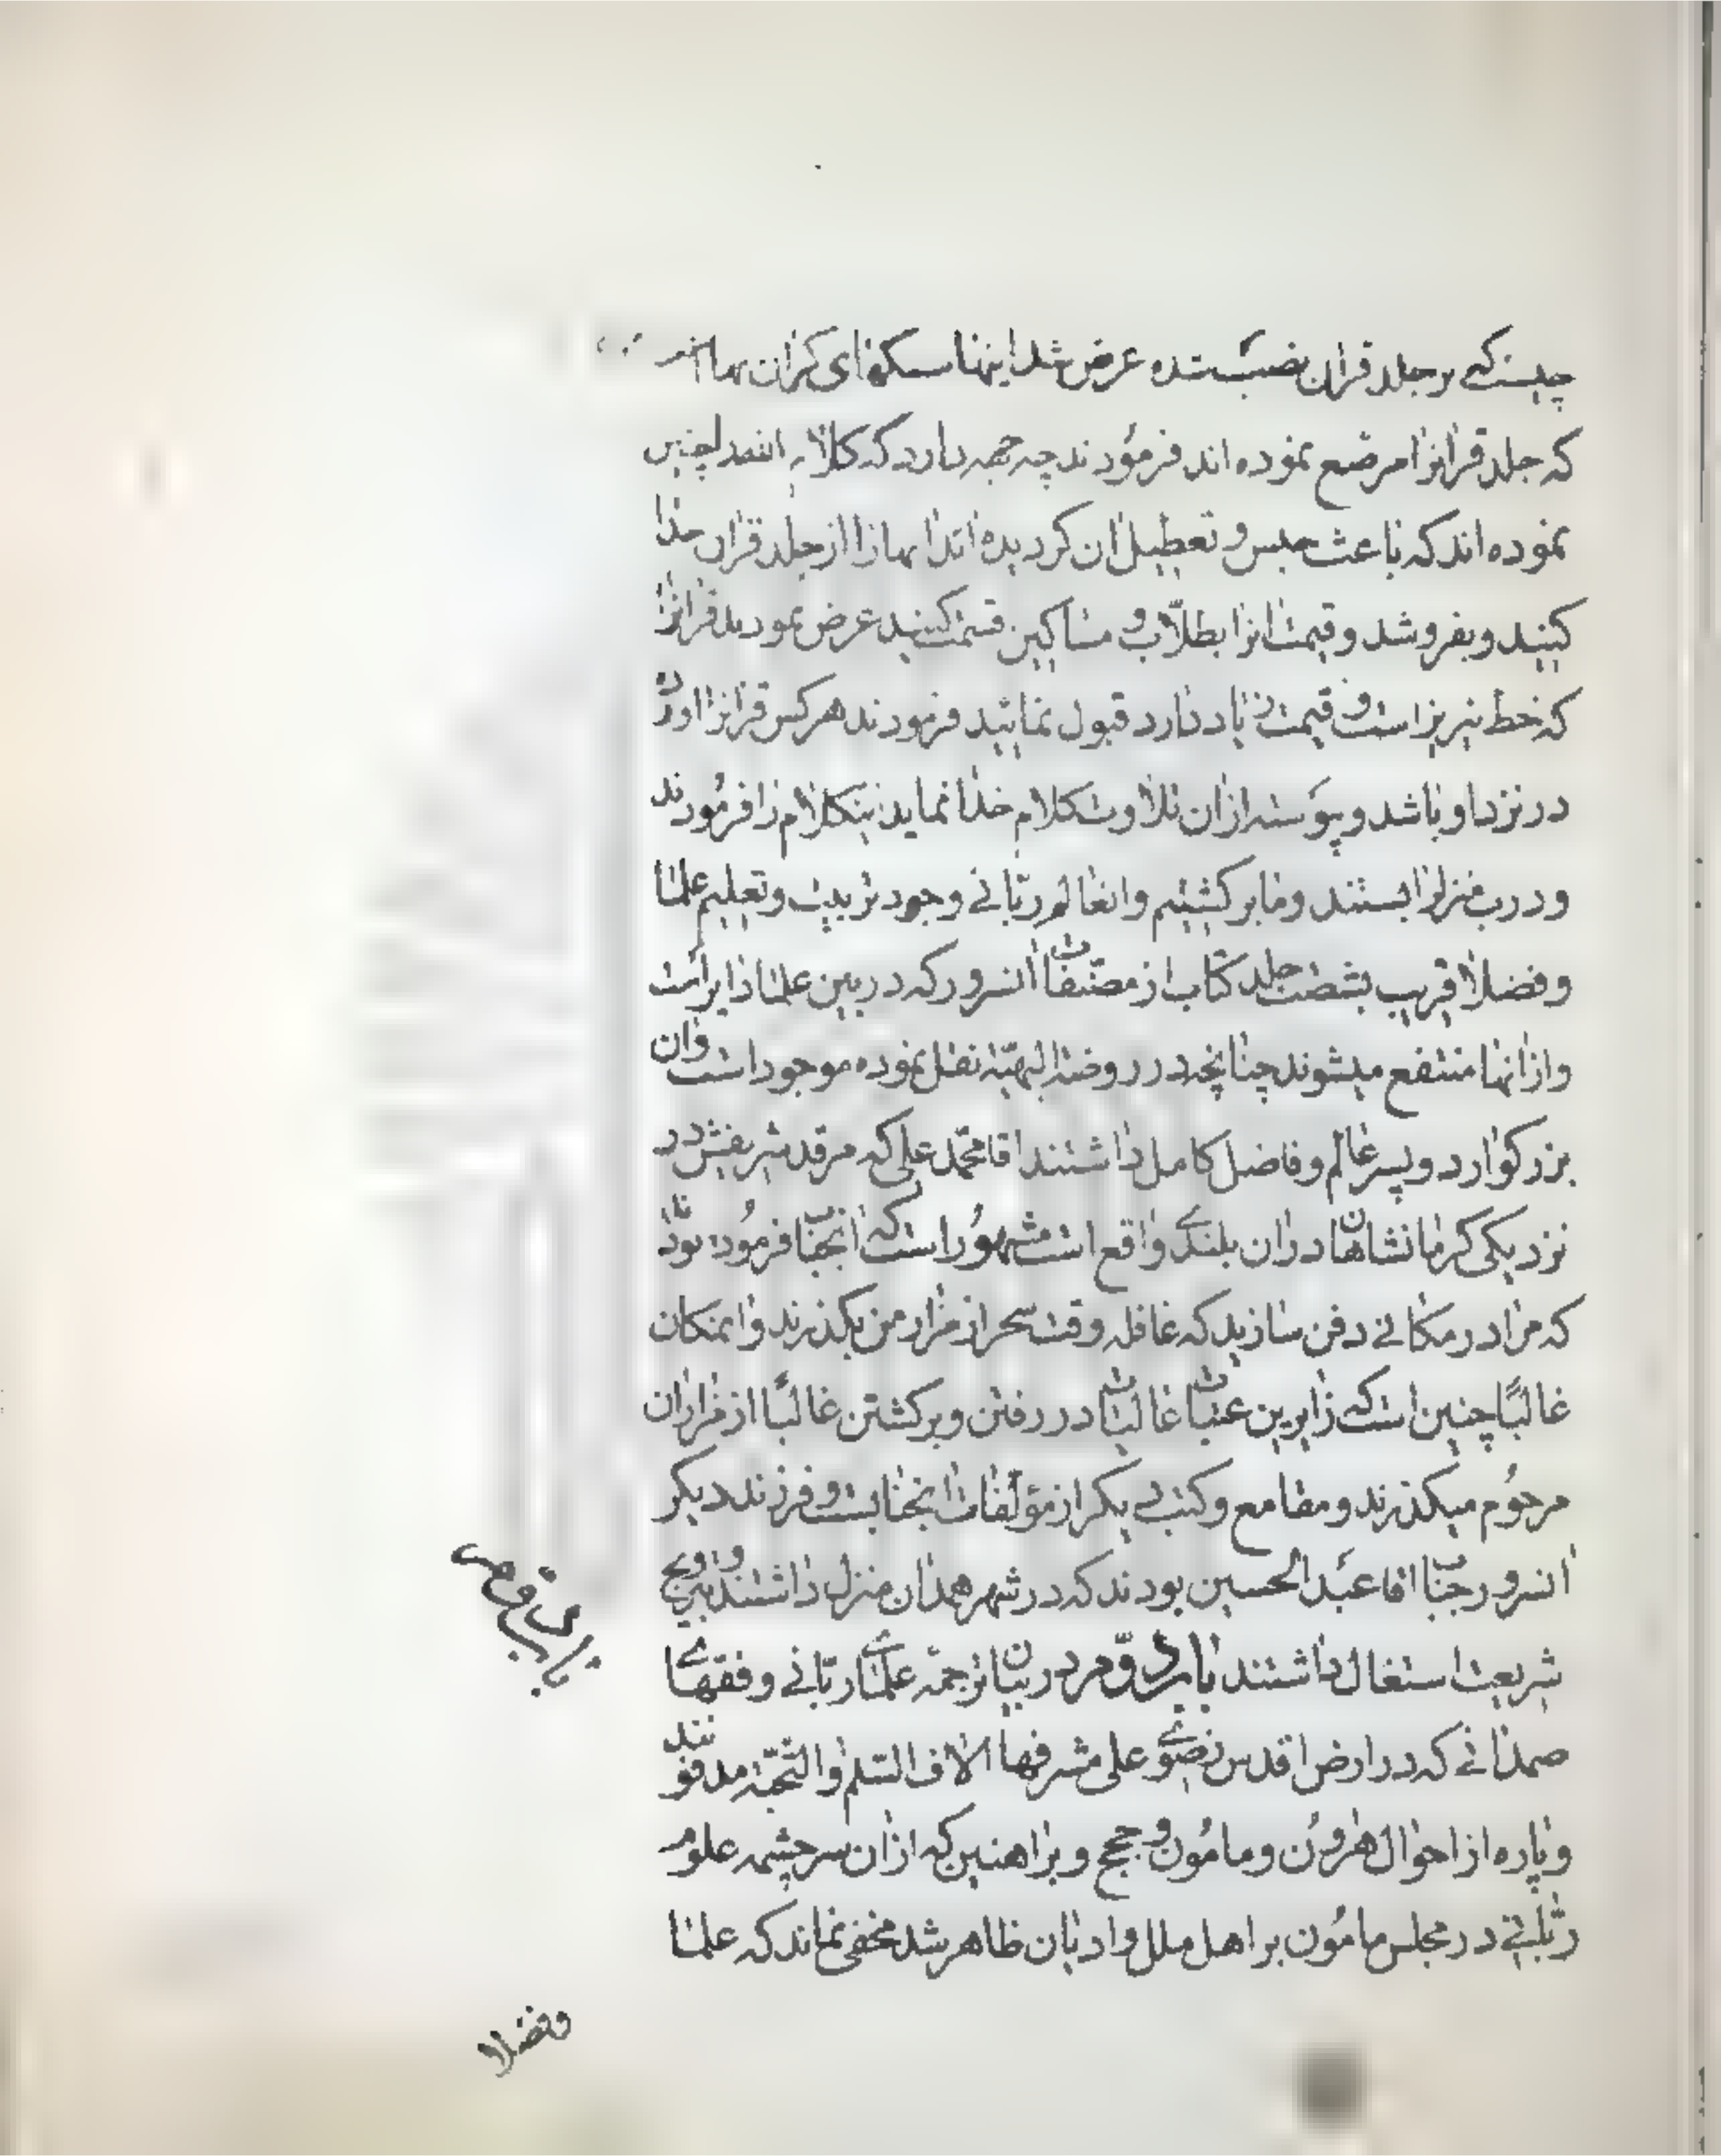 چیست که بر جلد قران نصب شده عرض شد اینها سنکهای کران بها است
که جلد قرانرا مرصع نموده اند فرمودند چه جهه دارد که کلام الله را چنین
نموده اند که باعث حبس و تعطیل ان کردیده اند انها را از جلد قران جدا
کنید و بفروشد و قیمت انرا بطلاب و مساکین قسمت کنید عرض نمودند قرانرا
که خط نیریز است و قیمت زیاد دارد قبول نمائید فرمودند هر کس قرانرا اورده
در نزد او باشد و پیوسته از ان تلاوت کلام خدا نماید اینکلام را فرمودند
و درب منزل را بستند و ما بر کشتیم و انعالم ربانی وجود تربیت و تعلیم علما
و فضلا قریب بشصت جلد کتاب از مصنفات انسرور که در بین علما دایر است
و از انها منتفع میشوند چنانچه در روضة البهیه نقل نموده موجود است وان
بزرکوار دو پسر عالم و فاضل کامل داشتند اقا محمد علی که مرقد شریفش در
نزدیکی کرمانشاهان در ان بلندی واقع است مشهور است که انجناب فرموده بودند
که مرا در مکانی دفن سازید که غافله وقت سحر از مزار من بکذرند وانمکان
غالبا چنین است که زایرین عتبات عالیات در رفتن و بر کشتن غالبا از مزار ان
مرحوم میکذرند و مقامع و کتب دیکر از مؤلفات انجنابست و فرزند دیکر
انسرور جناب اقا عبد الحسین بودند که در شهر همدان منزل داشتند و بترویج
شریعت اشتغال داشتند باب دوم در بیان ترجمه علمای ربانی و فقهای
صمدانی که در ارض اقدس رضوی علی مشرفها الاف السلم والتحیة مدفونند
و پاره از احوال هرون و مامون و حجج و براهین که از ان سرچشمه علوم
ربانی در مجلس مامون بر اهل ملل و ادیان ظاهر شد مخفی نماند که علما
وفضلا